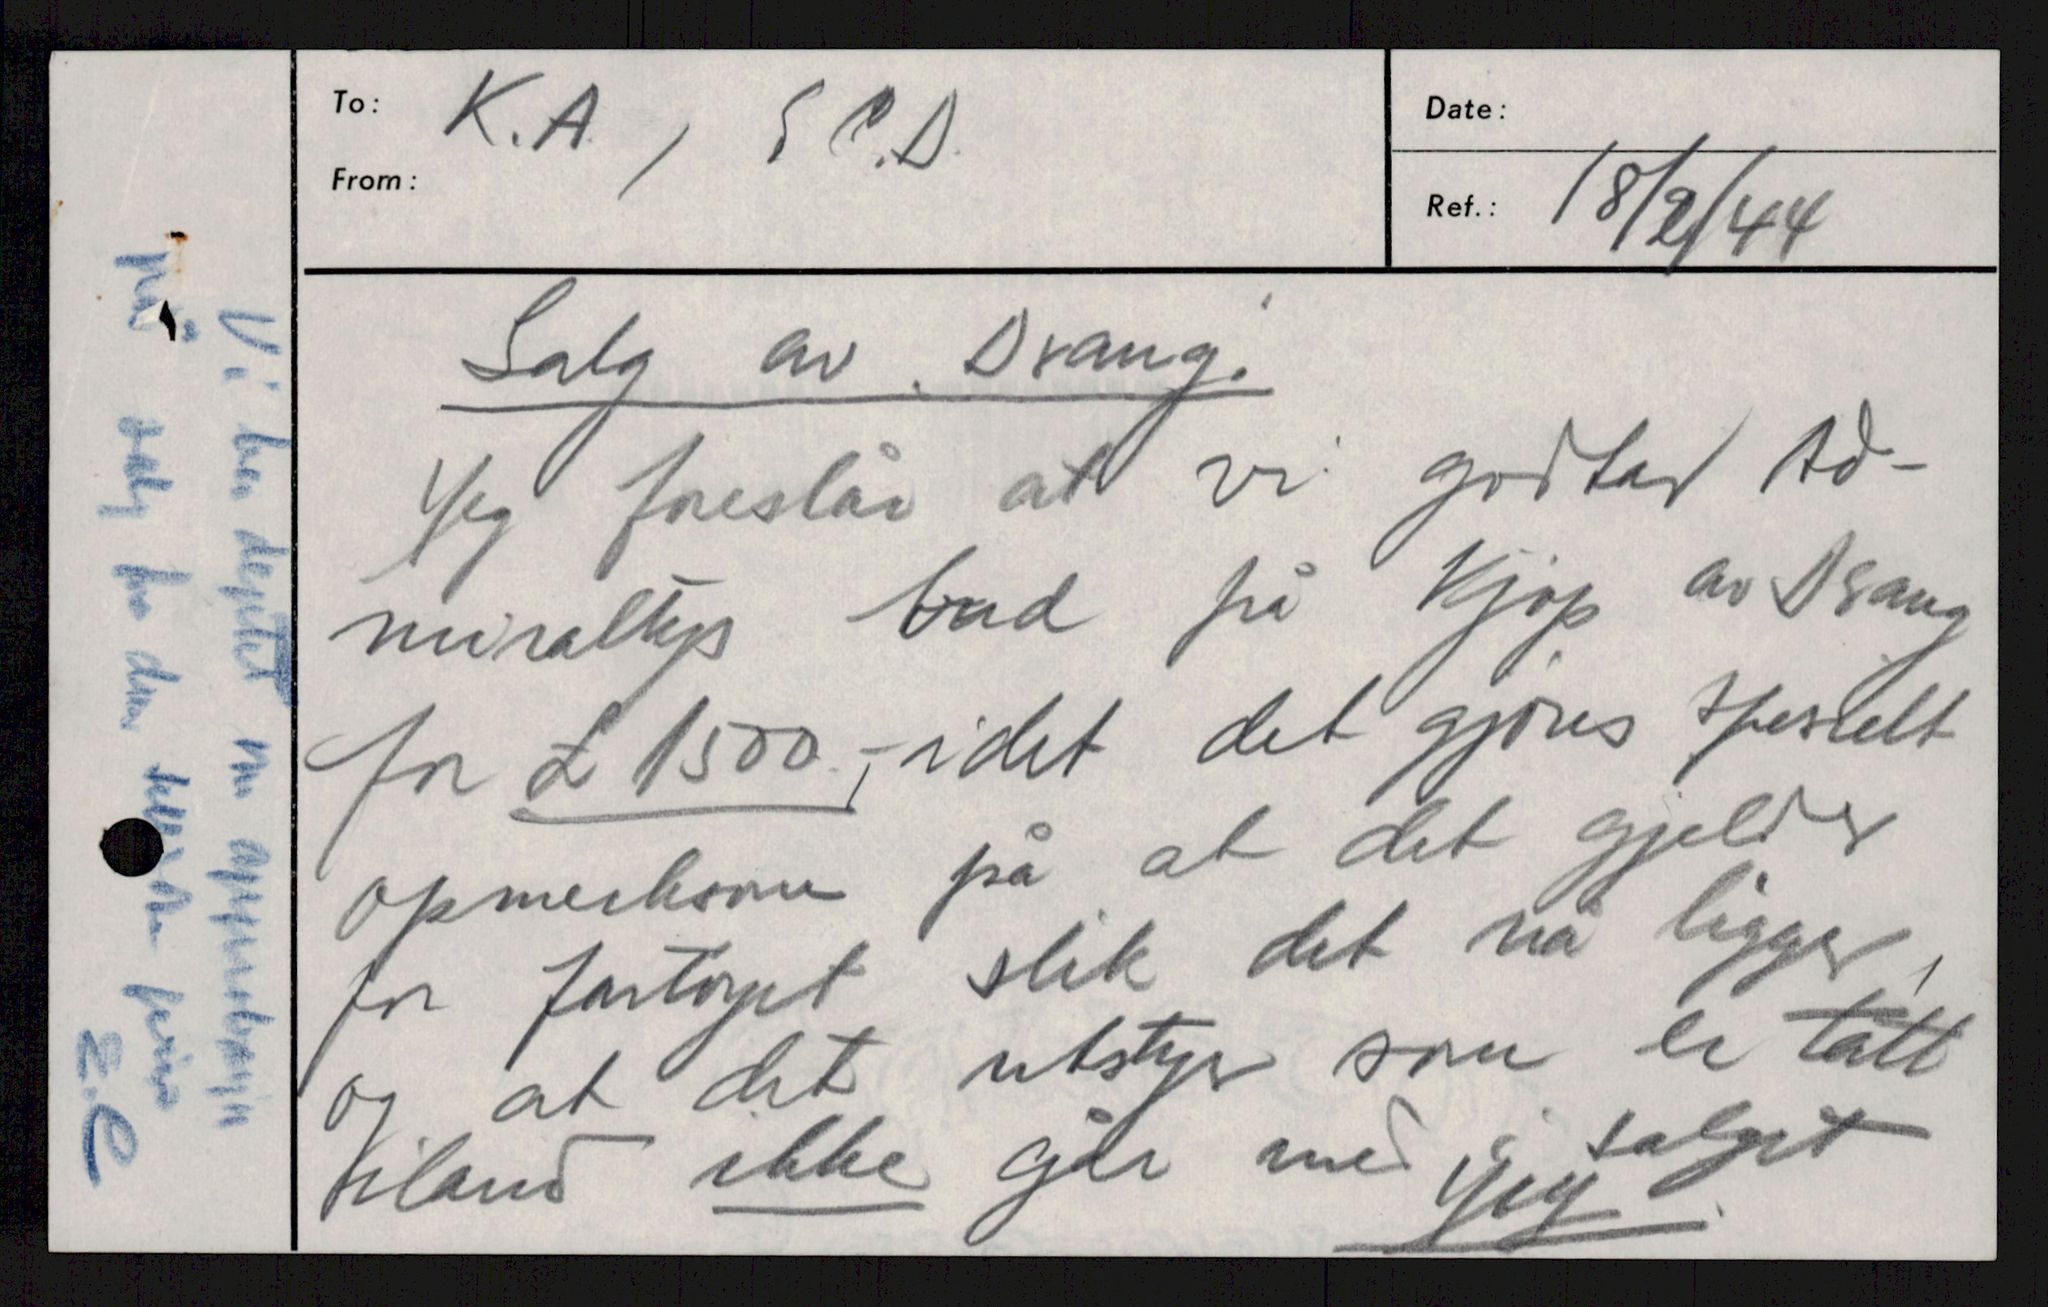 To: K.A. / S C.D.
From:
Date:
Ref.: 18/2/44
Salg av "Drang".
Jeg foreslår at vi godtar Ad-
miraltys bud på kjøp av Drang
for £ 1500,- idet det gjøres spesielt
opmerksom på at det gjelder
for fartøyet slik det nå ligger,
og at det utstyr som er tatt
iland ikke går med i salget
Vi har depitet om
på salg fra den
E.C